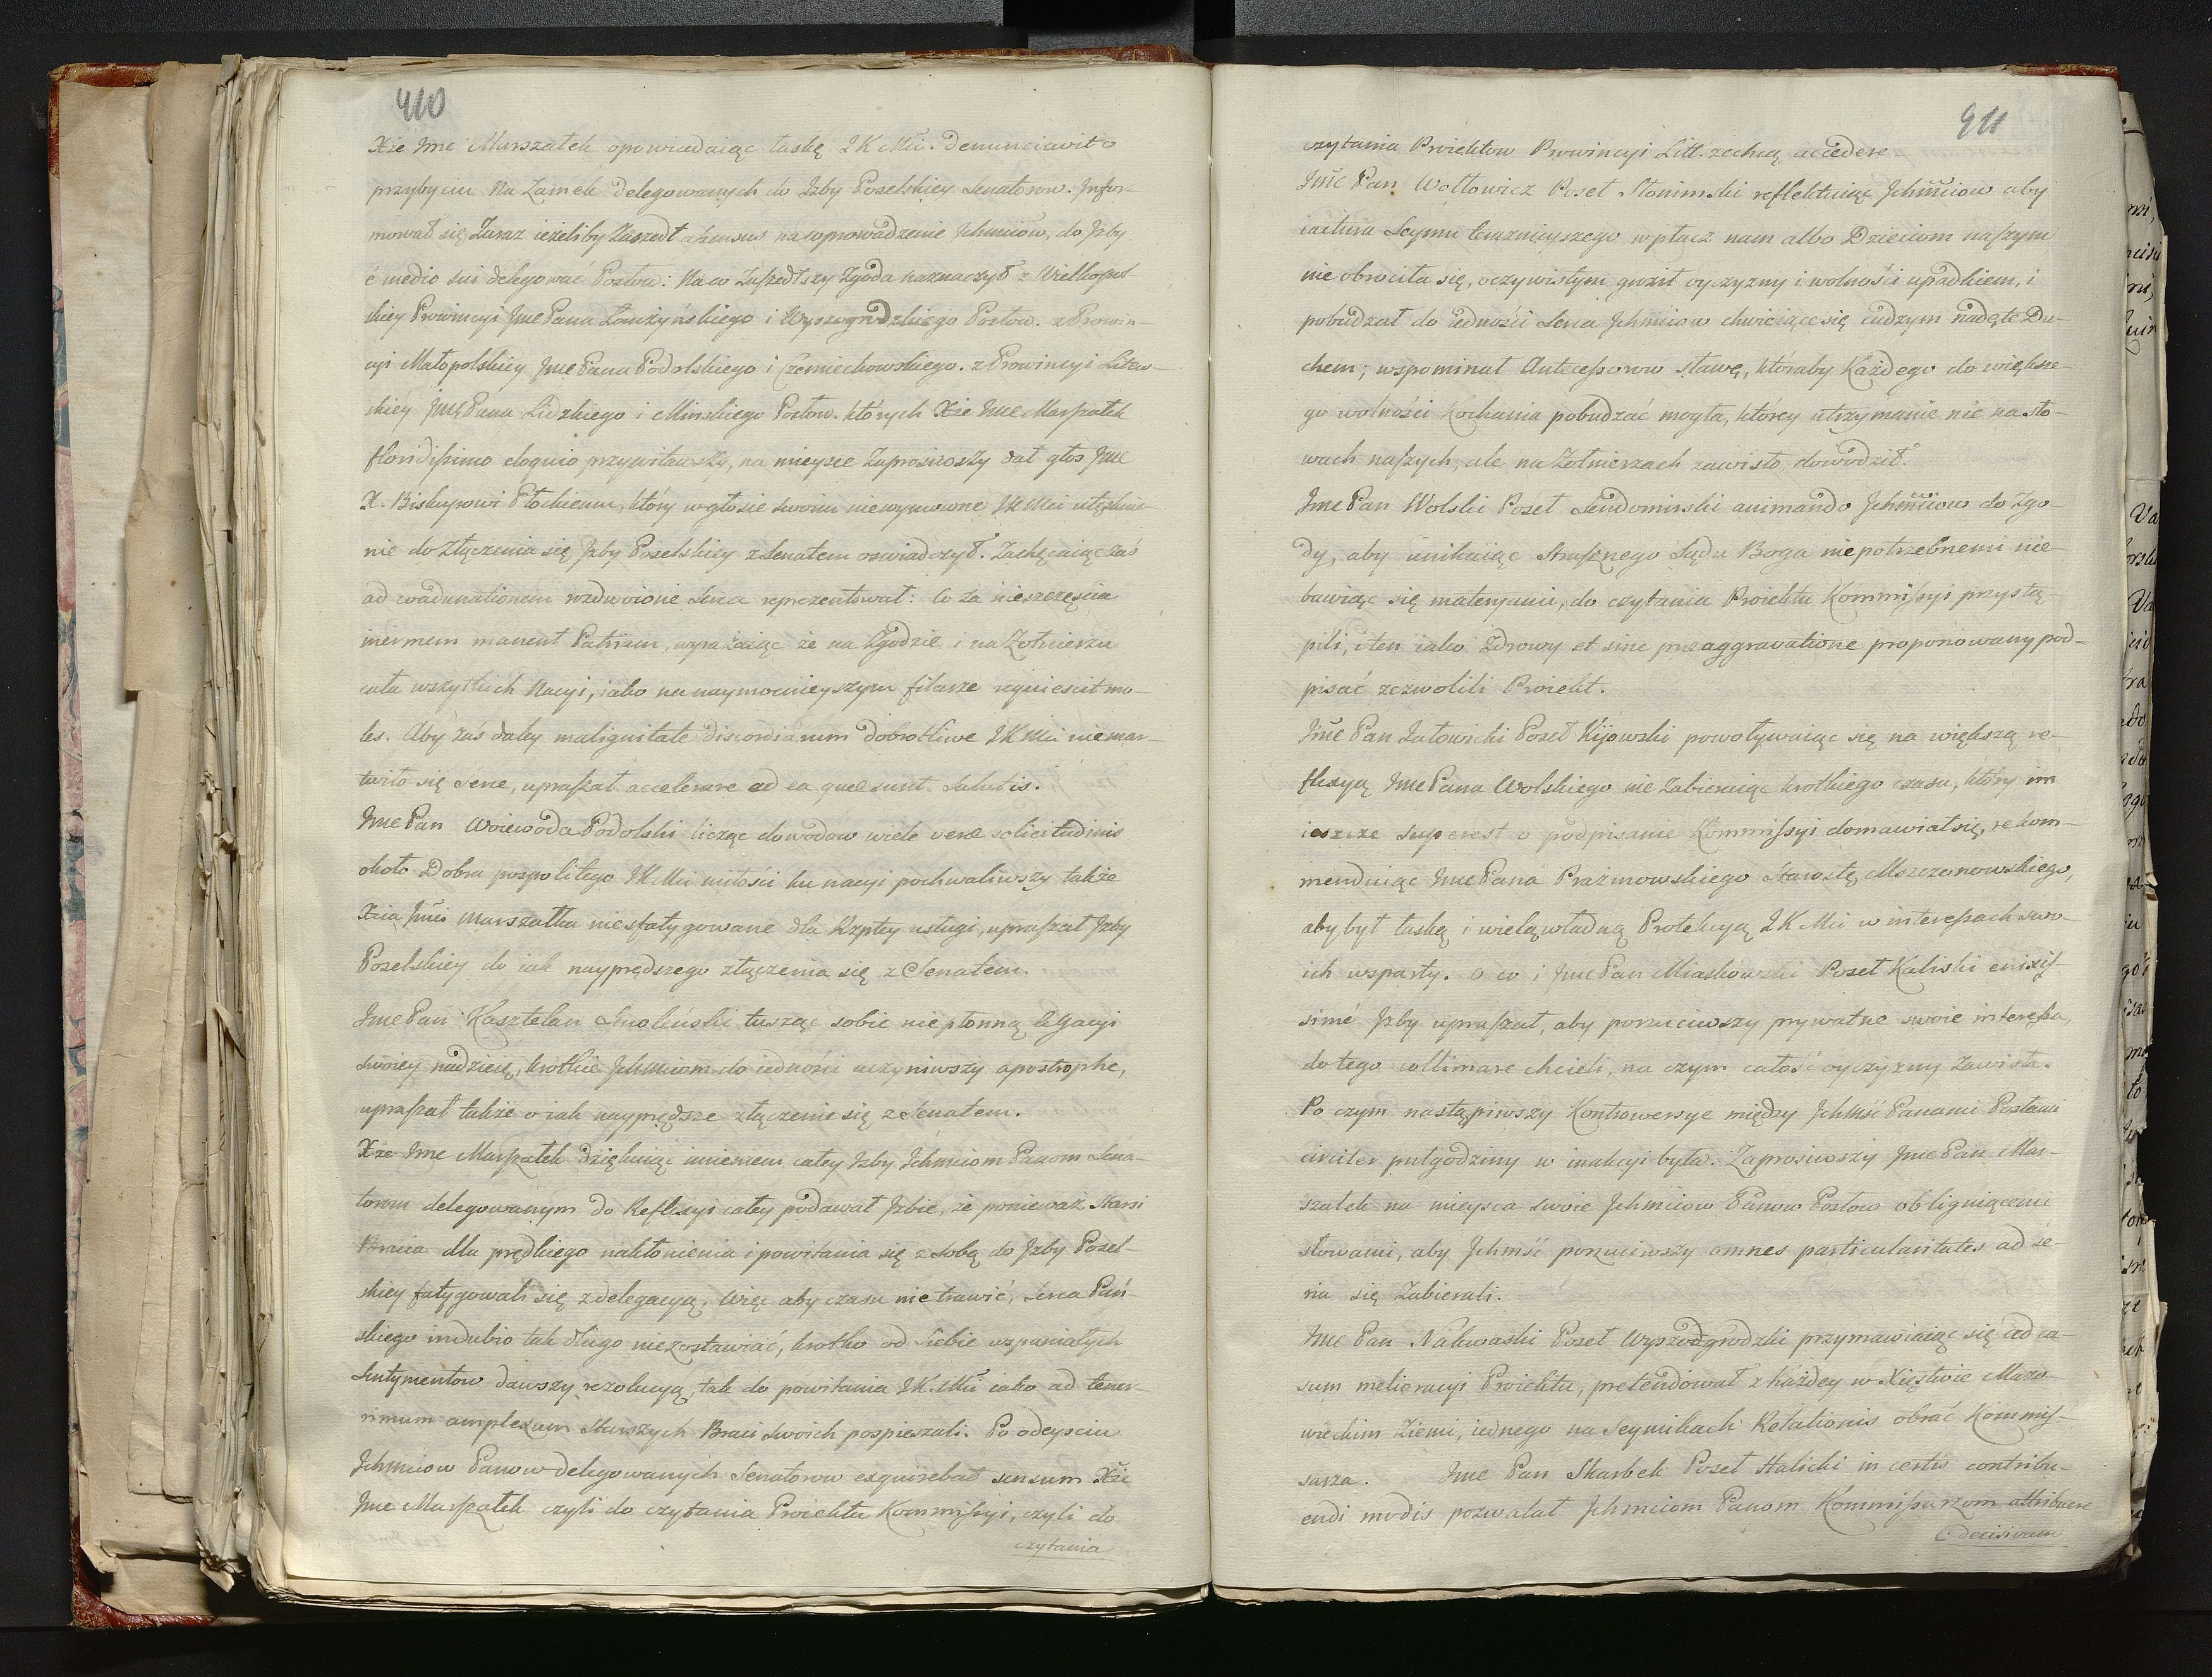 410
Xże Jme Marszałek opowiedaiąc łaskę JK Mci. denunciavit o
przybyciu na Zamek delegowanych do Jzby Poselskiey Senatorow. Jnfor-
mował się Zaraz ieżeliby Zaszedł assensus na wprowadzenie Jchmciow, do Jzby
é medio sui delegować Posłow: Na co Zaszedłszy Zgoda naznaczył z Wielkopol-
skiey Prowincyi Jme Pana Łomżyńskiego i Wyszogrodzkiego Posłow. z Prowin-
cyi Małopolskiey Jme Pana Podolskiego i Czerniechowskiego. z Prowincyi Litew-
skiey Jme Pana Lidzkiego i Minskiego Posłow. których Xże Jme Marszałek
floridissimo eloquio przywitawszy, na mieysce Zaprosiwszy dał głos Jme
X. Biskupowi Płockiemu, który w głosie swoim niewymowne JK Mci utęsknie-
nie do Złączenia się Jzby Poselskiey z Senatem oswiadczył. Zachęcaiąc zaś
ad coadunationem rozdwoione Serca reprezentował: Co za nieszczęścia
inermem manent Patriam, wyrażaiąc że na Zgodzie i na Zołnierzu
cała wszytkich Nacyi, iako na naymocnieyszym filarze requiescit mo-
les. Aby zaś daley malignitate discordiarum dobrotliwe JK Mci niemar-
twiło się Serce, upraszał accelerare ad ea quae sunt Salutis.
Jme Pan Woiewoda Podolski licząc dowodow wiele verae solicitudinis
około Dobra pospolitego JK Mci miłości ku nacyi pochwaliwszy także
Xcia Jmci Marszałka niesfatygowane dla Rzptey usługi, upraszał Jzby
Poselskiey do iak nayprędszego złączenia się z Senatem.
Jme Pan Kasztelan Smoleński tusząc sobie niepłonną legacyi
swoiey nadzieię, krotkie Jchmciom do iedności uczyniwszy apostrophe,
upraszał także o iak nayprędsze złączenie się z Senatem.
Xże Jme Marszałek dziękuiąc imieniem całey Jzby Jchmciom Panom Sena-
torom delegowanym do Reflexyi całey podawał Jzbie, że ponieważ Starsi
Bracia dla prędkiego nakłonienia i powitania się z sobą do Jzby Posel-
skiey fatygowali się z delegacyą, Więc aby czasu nie trawić, Serca Pań-
skiego in dubio tak długo nie zostawiać, krotko od Siebie wspaniałych
Sentymentow dawszy rezolucyą, tak do powitania JK. Mci iako ad tener-
rimum amplexum Starszych Braci Swoich pospieszali. Po odeysciu
Jchmciow Panow delegowanych Senatorow exquirebat sensum Xże
Jme Marszałek czyli do czytania Proiektu Kommissyi, czyli do
czytania
411
czytania Proiektow Prowincyi Litt. zechcą accedere
Jme Pan Wołłowicz Poseł Słonimski reflektuiąc Jchmciow aby
iactura Seymu teraznieyszego w płacz nam albo Dzieciom naszym
nie obrociła się, oczywistym groził oyczyzny i wolności upadkiem, i
pobudzał do iedności Serca Jchmciow chwieiące się cudzym nadęte Du-
chem; wspominał Antecessorow sławę, któraby Każdego do większe-
go wolności Kochania pobudzać mogła, którey utrzymanie nie na sło-
wach naszych, ale na Żołnierzach zawisło, dowodził.
Jme Pan Wolski Poseł Sendomirski animando Jchmciow do Zgo-
dy, aby unikaiąc Strasznego Sądu Boga niepotrzebnemi nie-
bawiąc się materyami, do czytania Proiektu Kommissyi przystą-
pili, i ten iako Zdrowy et sine praeaggravatione proponowany pod-
pisać zezwolili Proiekt.
Jme Pan Zatowicki Poseł Kijowski powoływaiąc się na większą re-
flexyą Jme Pana Wolskiego nie Zabieraiąc krotkiego czasu, który im
ieszcze superest o podpisanie Kommissyi domawiał się, rekom-
menduiąc Jme Pana Prażmowskiego Starostę Mszczonowskiego,
aby był łaską i wieląwładną Protekcyą JK Mci w interessach swo-
ich wsparty. O co i Jme Pan Miaskowski Poseł Kaliski enixis-
simé Jzby upraszał, aby porzuciwszy prywatne swoie interessa,
do tego collimare chcieli, na czym całość oyczyzny Zawisła.
Po czym nastąpiwszy Kontrowersye między Jchmść Panami Posłami
circiter pułgodziny w inakcyi była. Zaprosiwszy Jme Pan Mar-
szałek na mieysca swoie Jchmciow Panow Posłow obliguiącemi
słowami, aby Jchmść porzuciwszy omnes particularitates ad se-
ria się Zabierali.
Jme Pan Nakwaski Poseł Wyszodgrodzki przymawiaiąc się ad ca-
sum melioracyi Proiektu, pretendował z Każdey w Xięstwie Mazo-
wieckim Ziemi, iednego na Seymikach Relationis obrać Kommis-
sarza. Jme Pan Skarbek Poseł Halicki in certis contribu-
endi modis pozwalał Jchmciom Panom Kommissarzom attribuere
decisivam